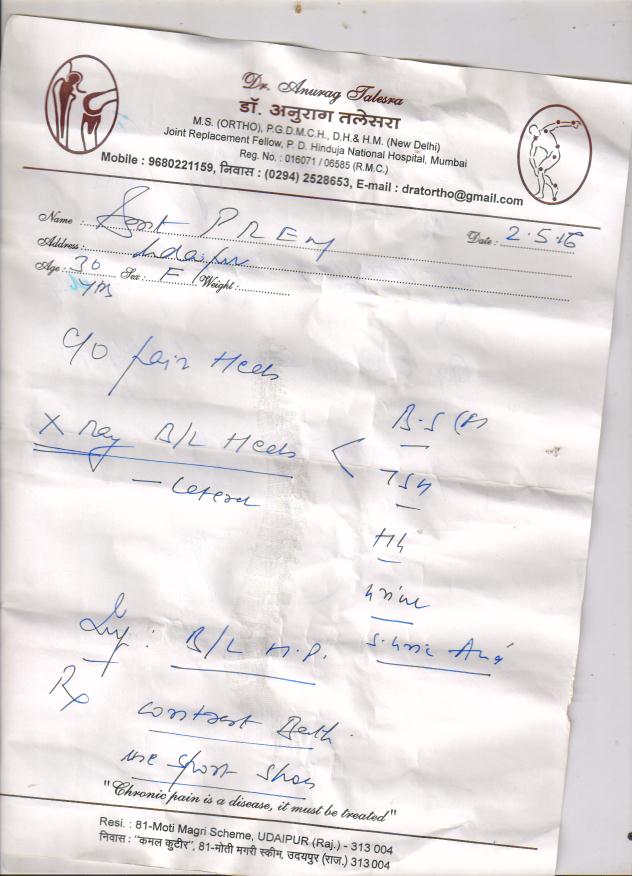 Dr. Anurag Talesra
डॉ. अनुराग तलेसरा
M.S. (ORTHO), P.G.D.M.C.H., D.H.& H.M. (New Delhi)
Joint Replacement Fellow, P. D. Hinduja National Hospital, Mumbai
Reg. No. : 016071 / 06585 (R.M.C.)
Mobile : 9680221159, निवास : (0294) 2528653, E-mail : dratortho@gmail.com
Name : Smt PREM Date : 2.5.16
Address : Udaipur
Age : 30 Sex : F Weight :
yrs
C/O pain Heels
X Ray B/L Heels < B.S (R)
- Lateral TSH
Hb
Urine
S. Uric Acid
: B/L H.P.
Rx
Contrast Bath
use sport shoes
"Chronic pain is a disease, it must be treated"
Resi. : 81-Moti Magri Scheme, UDAIPUR (Raj.) - 313 004
निवास : "कमल कुटीर", 81-मोती मगरी स्कीम, उदयपुर (राज.) 313 004